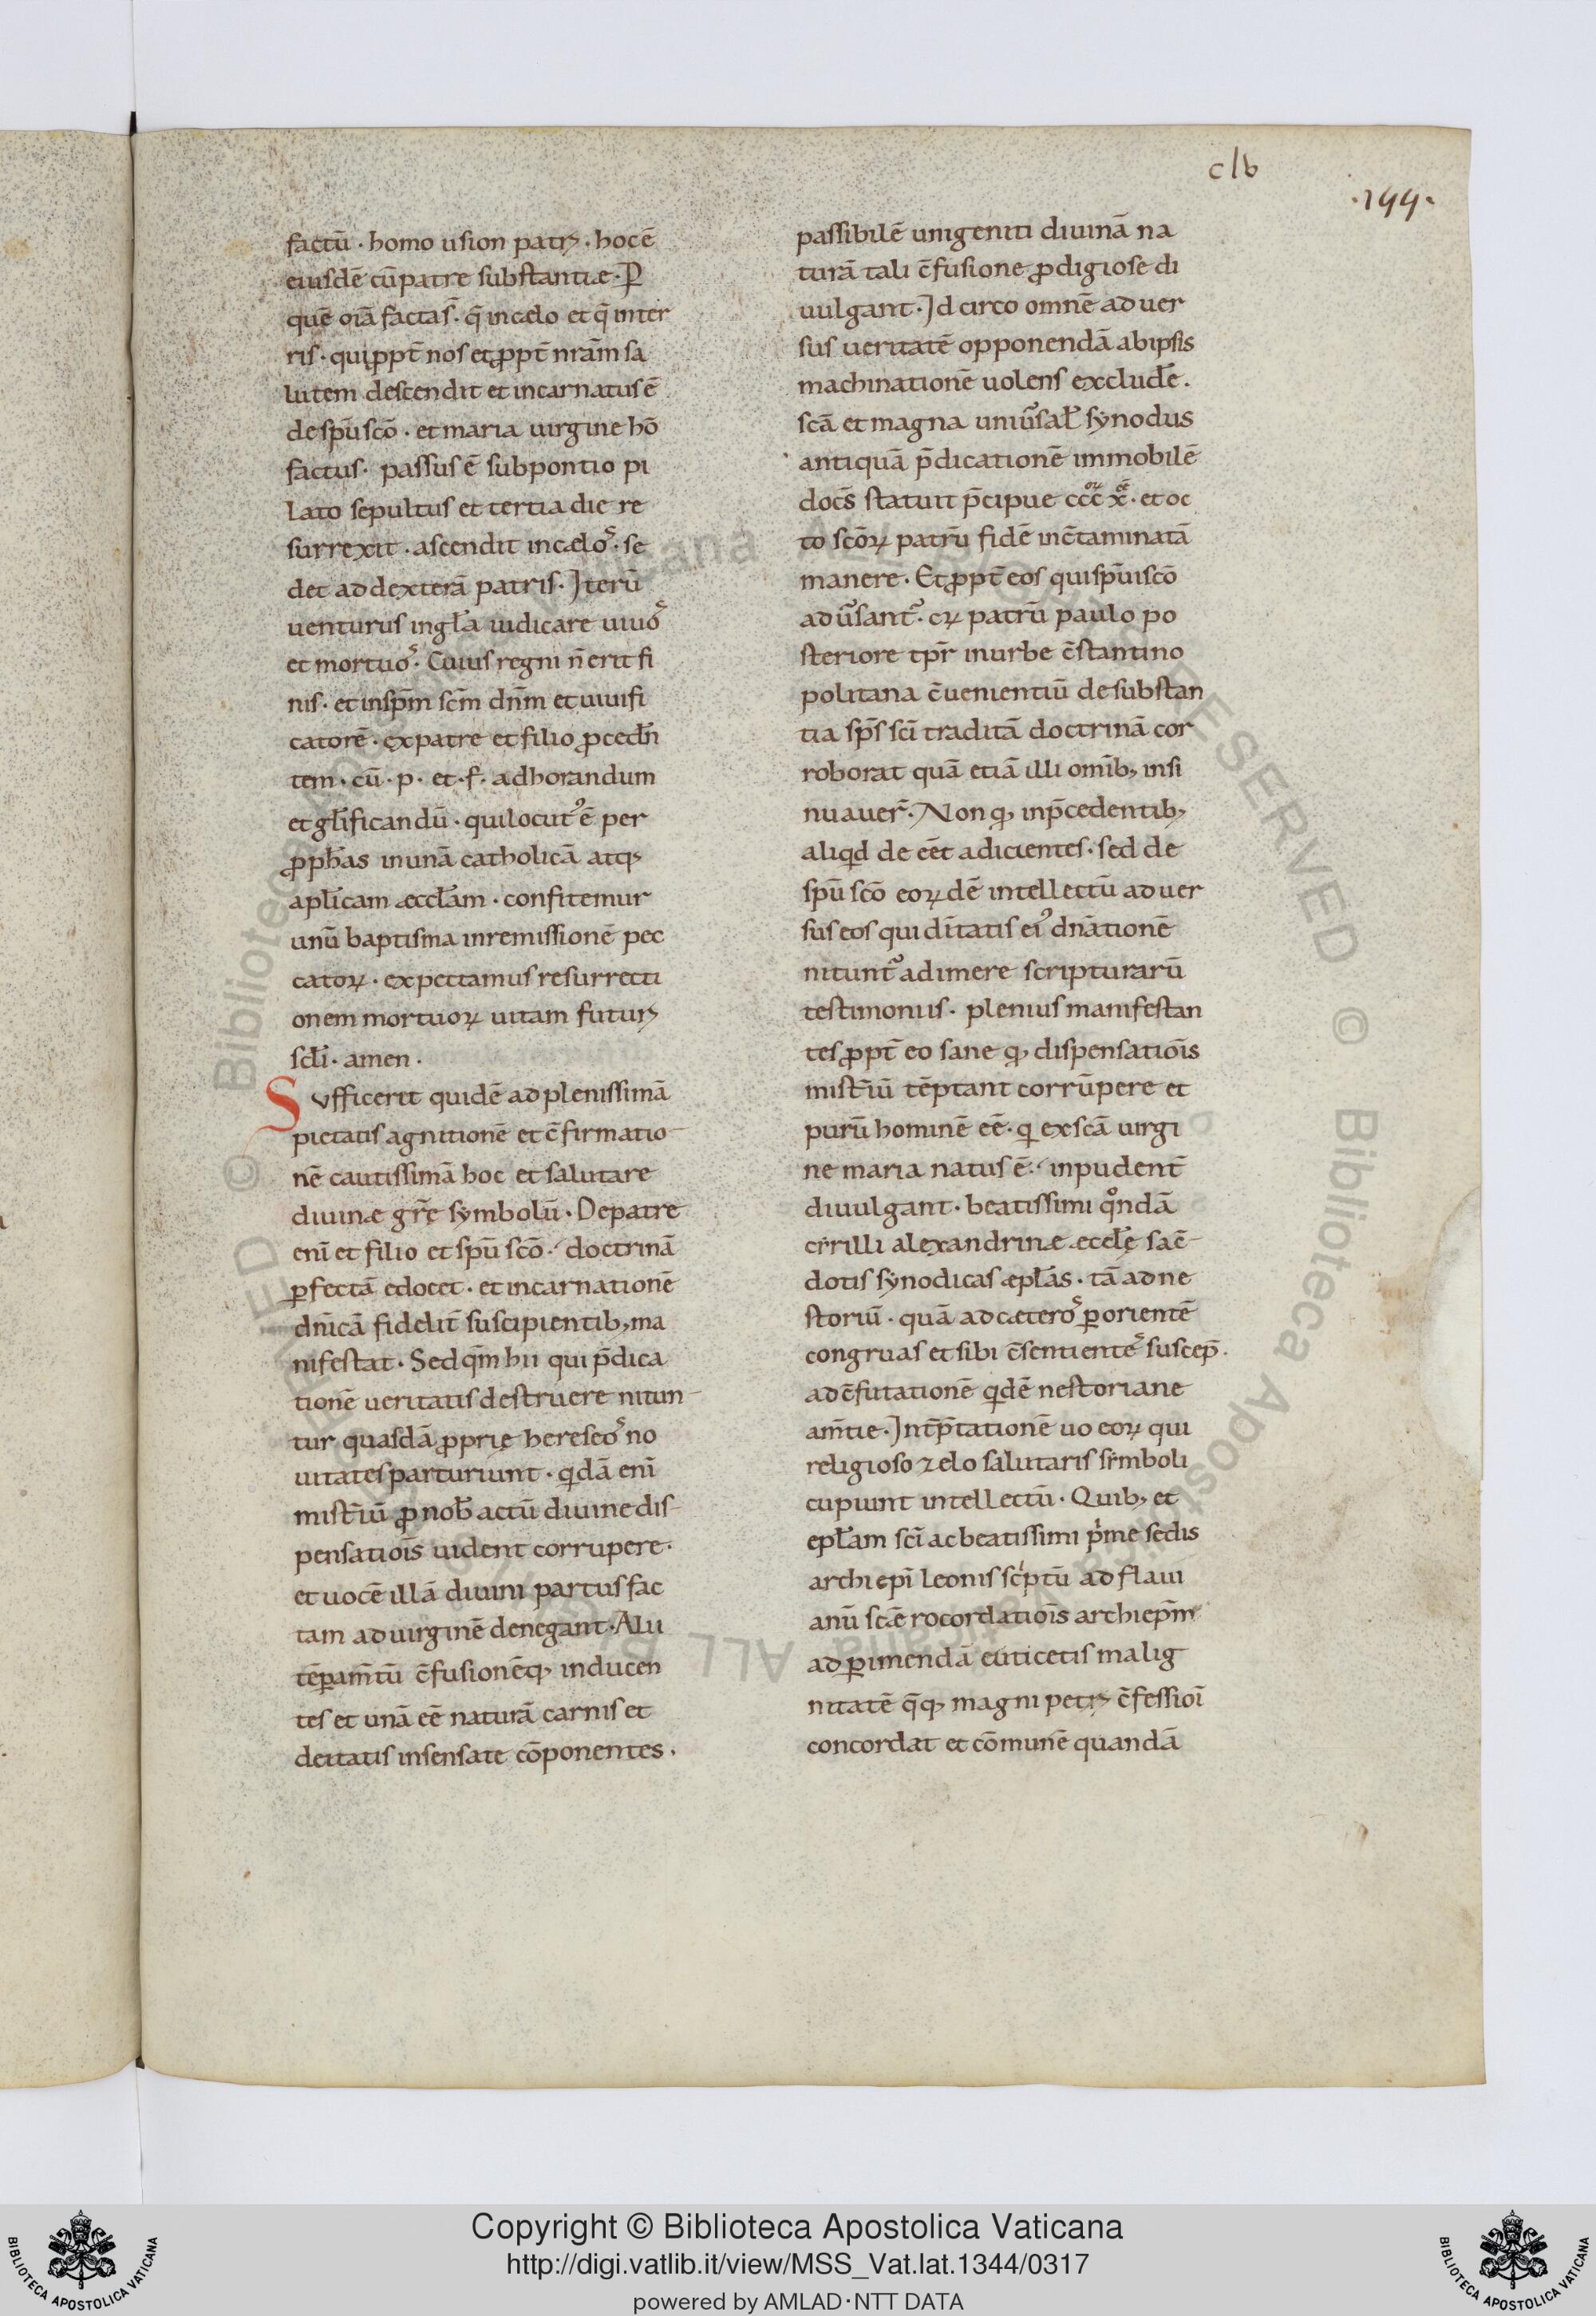 clv
·144·
factū · homo usion patꝝ · hoc ē
eiusdē cū patre substantiæ · P̲
quē oīa facta s̄ · q̄ in cælo et q̄ in ter
ris · qui ꝓpt̄ nos et ꝓpt̄ nr̄am sa
lutem descendit et incarnatus ē
de sp̄u scō · et maria uirgine hō
factus · passus ē sub pontio pi
lato sepultus et tertia die re
surrexit · ascendit in cæloᷤ · se
det ad dexterā patris · Iterū
uenturus in gl̄a iudicare uiuoᷤ
et mortuoᷤ · Cuius regni n̄ erit fi
nis · et in sp̄m sc̄m dn̄m et uiuifi
catorē · ex patre et filio ꝓceden̄
tem · cū · p · et · f · adhorandum
et gl̄ificandū · qui locutꝰ ē per
ꝓph̄as in unā catholicā atq;
apl̄icam æccl̄am · confitemur
unū baptisma in remissionē pec
catoꝝ · expectamus resurrecti
onem mortuoꝝ uitam futuꝝ
scl̄i · amen ·
Sufficeret quidē ad plenissimā
pietatis agnitionē et c̄firmatio
nē cautissimā hoc et salutare
diuinæ gr̄ę sẏmbolū · De patre
eni᷉ et filio et sp̄u scō · doctrinā
ꝑfectā edocet · et incarnationē
dn̄icā fidelit̄ suscipientib; ma
nifestat · Sed qm̄ hii qui p̄dica
tionē ueritatis destruere nitun
tur quasdā ꝓprię hereseoᷤ no
uitates parturiunt · qͥdā eni᷉
mist̄iū ꝓ nob̄ actū diuine dis
pensatiōis uident corrupere ·
et uocē illā diuini partus fac
tam ad uirginē denegant · Alii
tēꝑam̄tū c̄fusionēq; inducen
tes et unā eē naturā carnis et
deitatis insensate cōponentes ·
passibilē unigeniti diuinā na
turā tali c̄fusione ꝓdigiose di
uulgant · Idcirco omnē aduer
sus ueritatē opponendā ab ipsis
machinationē uolens exclud̄e ·
scā et magna uniu᷉sal̄ sẏnodus
antiquā p̄dicationē immobilē
docēs statuit p̄cipue ccc x̄ · et oc
to scōꝝ patrū fidē inc̄taminatā
manere · Et ꝓpt̄ eos qui sp̄ui scō
adu᷉sant᷉ · eꝝ patrū paulo po
steriore tpr̄ in urbe c̄stantino
politana c̄uenientiū de substan
tia sp̄s sc̄i traditā doctrinā cor
roborat quā etiā illi omīb; insi
nuauer̄ · Non q; in p̄cedentib;
aliqͥd de eēt adicientes · sed de
sp̄u scō eoꝝdē intellectū aduer
sus eos qui dītatis eiꝰ dn̄ationē
nitunt᷉ adimere scripturarū
testimoniis · plenius manifestan
tes ꝓpt̄ eo sane q; dispensatiōis
mist̄iū tēptant corrūpere et
purū hominē eē · qͥ ex scā uirgi
ne maria natus ē · inpudent̄
diuulgant · beatissimi qͦndā
cẏrilli alexandrinæ æccl̄ę sac̄
dotis sẏnodicas æpl̄as · tā ad ne
storiū · quā ad cæteroᷤ ꝑ orientē
congruas et sibi c̄sentienteᷤ suscep̄ ·
ad c̄futationē qͥdē nestoriane
am̄tie · Int̄p̄tationē uo eoꝝ qui
religioso zelo salutaris sẏmboli
cupiunt intellectū · Quib; et
epl̄am sc̄i ac beatissimi pͥme sedis
archiepi᷉ Leonis scͥptū ad flaui
anū scǣ rocordatiōis archiepm̄
ad ꝑimendā euticetis malig
nitatē q̄q; magni petꝝ c̄fessioi᷉
concordat et cōmunē quandā
Copyright © Biblioteca Apostolica Vaticana
http://digi.vatlib.it/view/MSS_Vat.lat.1344/0317
powered by AMLAD·NTT DATA